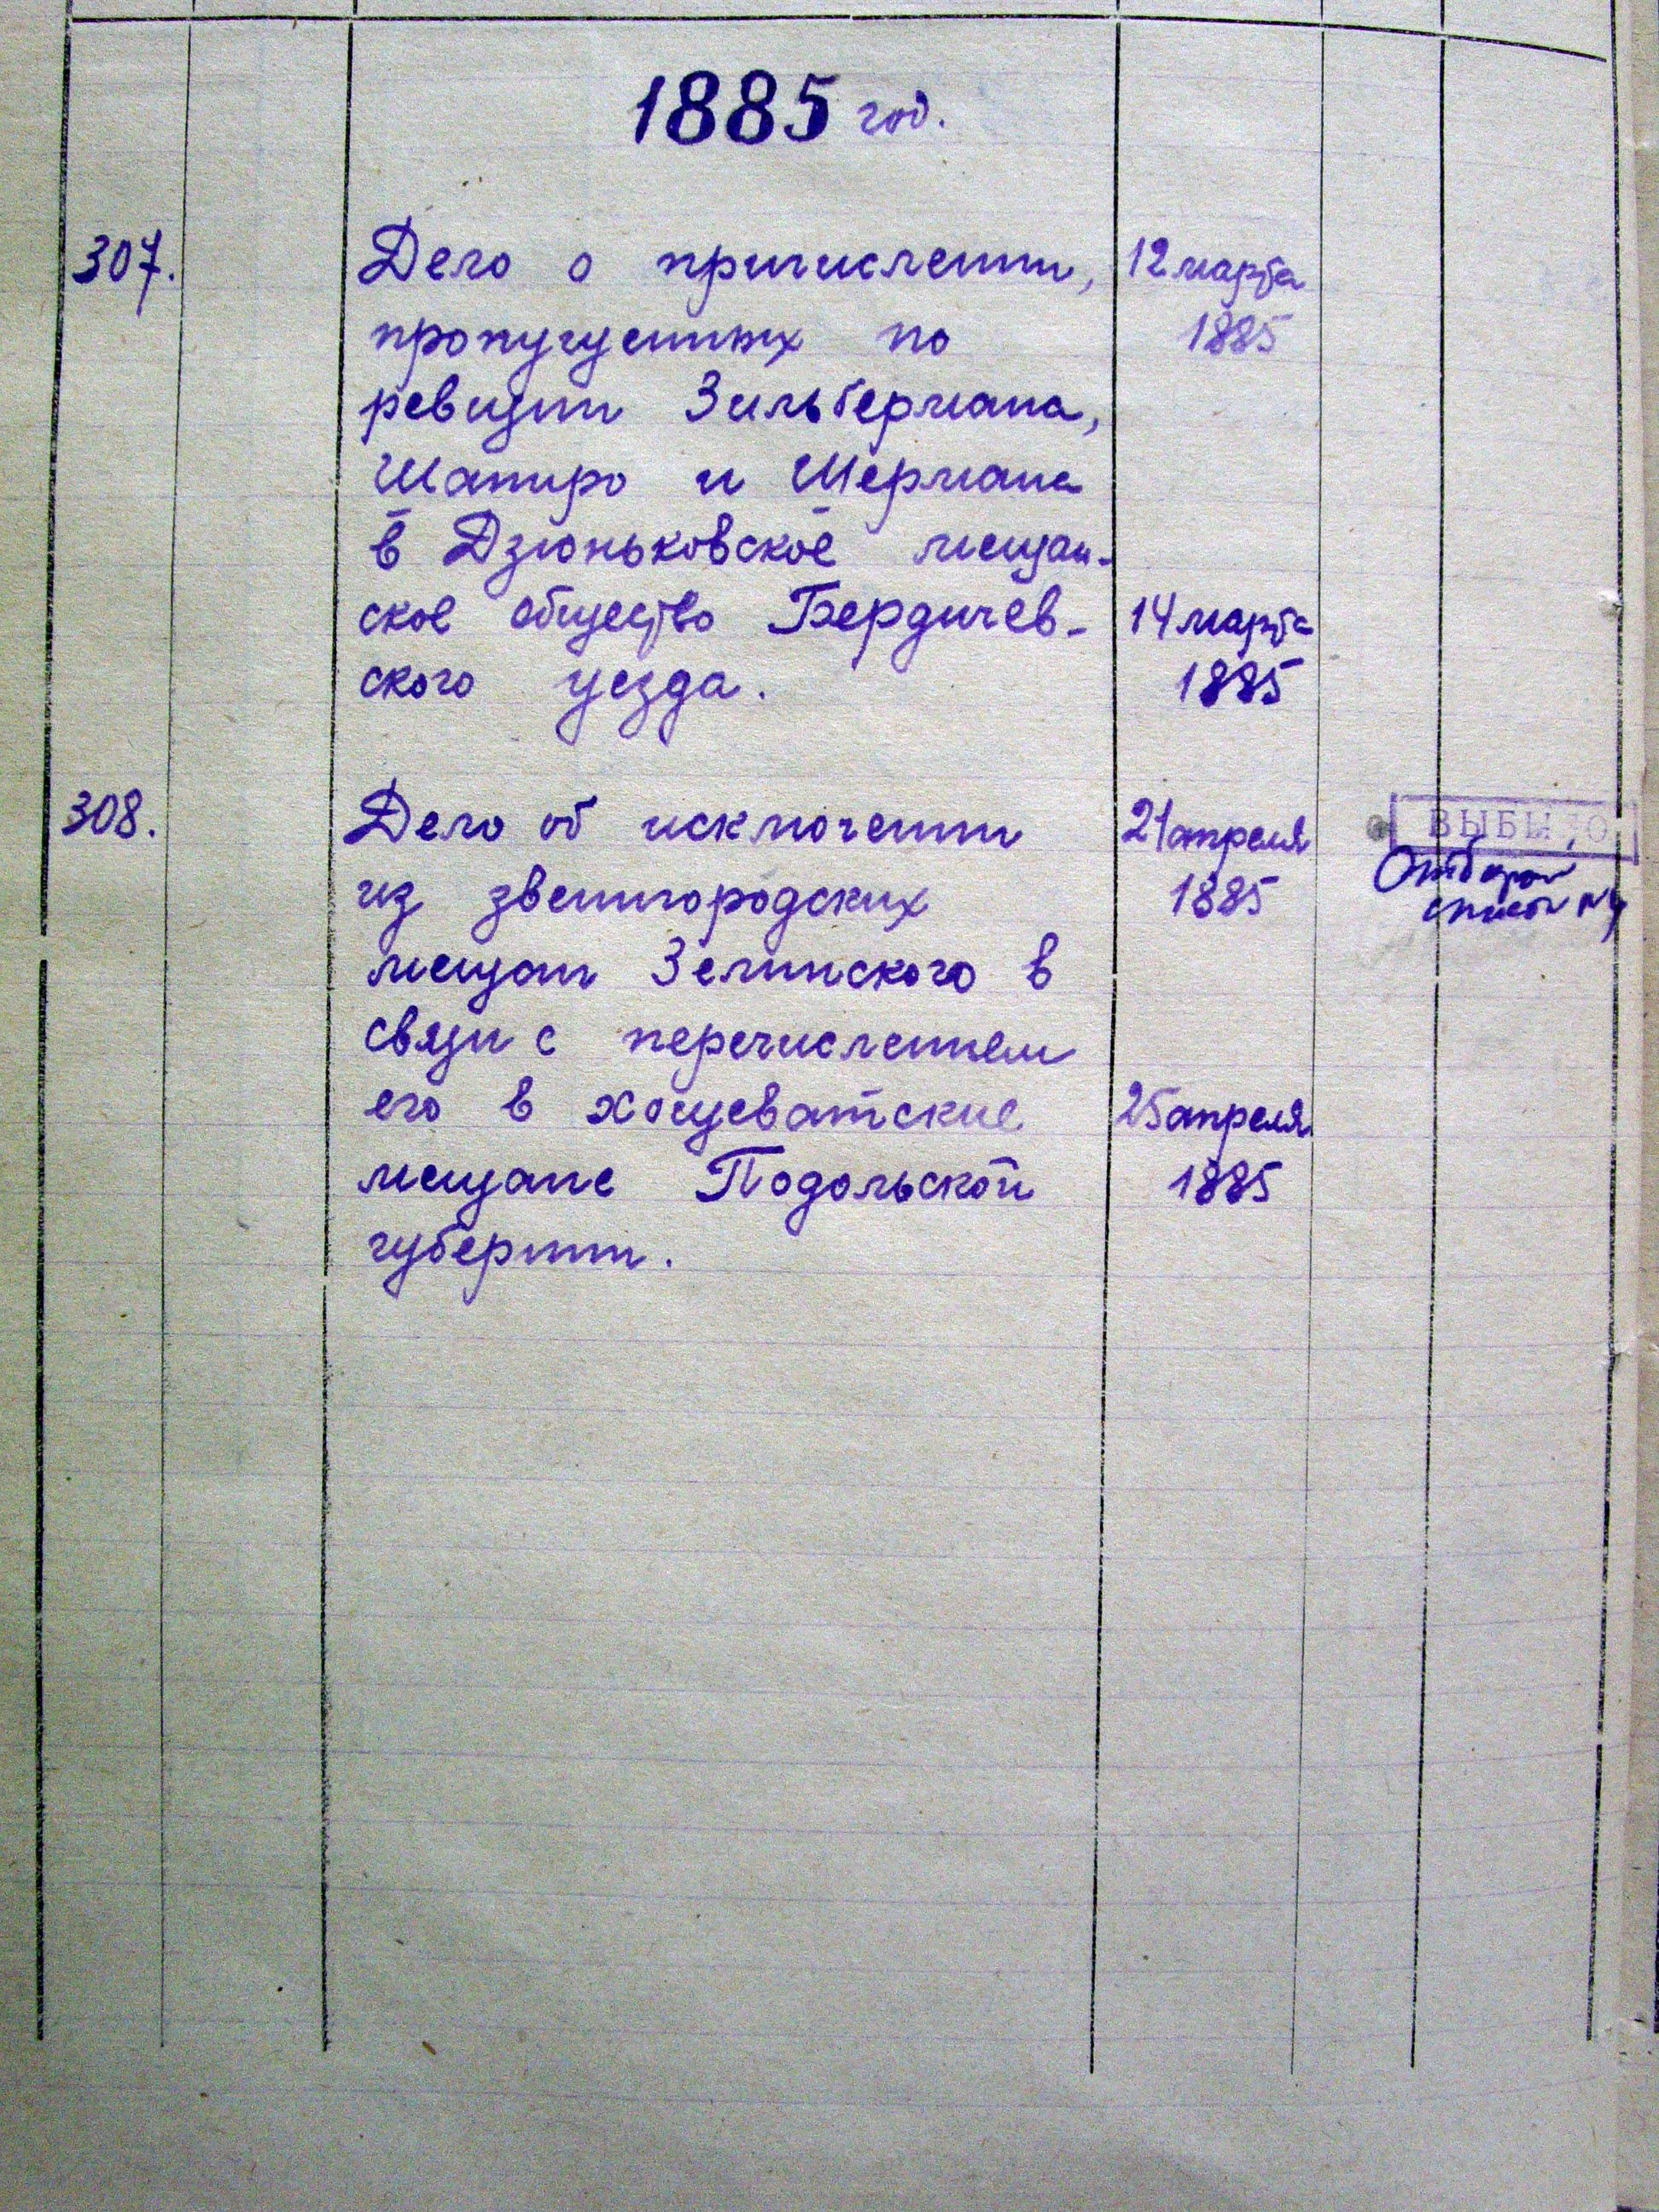 1885 год.
307.
Дело о причислении,
пропущенных по
ревизии Зильбермана,
Шапиро и Шермана
в Дзюньковское мещан-
ское общество Бердичев-
ского уезда.
12 марта
1885
14 марта
1885
308.
Дело об исключении
из звенигородских
мещан Зелинского в
связи с перечислением
его в хощеватские
мещане Подольской
губернии.
21 апреля
1885
25 апреля
1885
ВЫБЫЛО